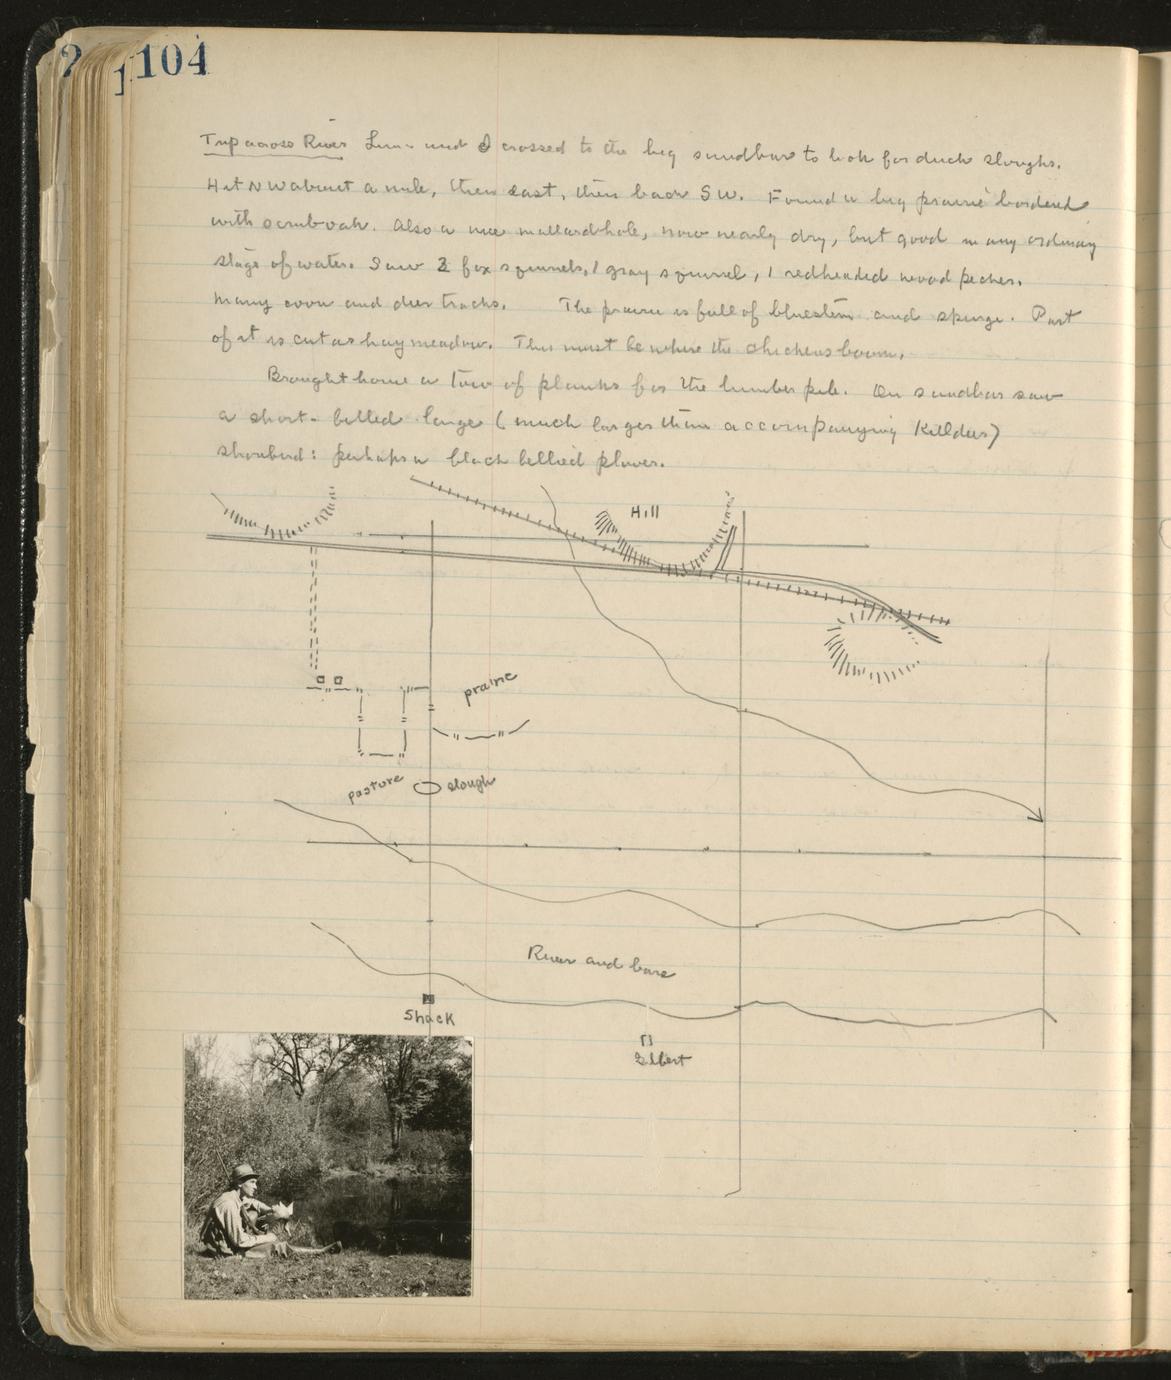 104
Trip across River Luna and I crossed to the big sandbar to look for duck sloughs.
Hit NW about a mile, then east, then back SW. Found a big prairie bordered
with scrub oak. Also a nice mallard hole, now nearly dry, but good in any ordinary
stage of water. Saw 2 fox squirrels, 1 gray squirrel, 1 redheaded woodpecker.
Many coon and deer tracks. The prairie is full of bluestem and spurge. Part
of it is cut as hay meadow. This must be where the chickens boom.
Brought home a tow of planks for the lumber pile. On sandbar saw
a short-billed large (much larger than accompanying Killdeer)
shorebird: perhaps a black bellied plover.
Hill
prairie
pasture
slough
River and bars
Shack
Gilbert